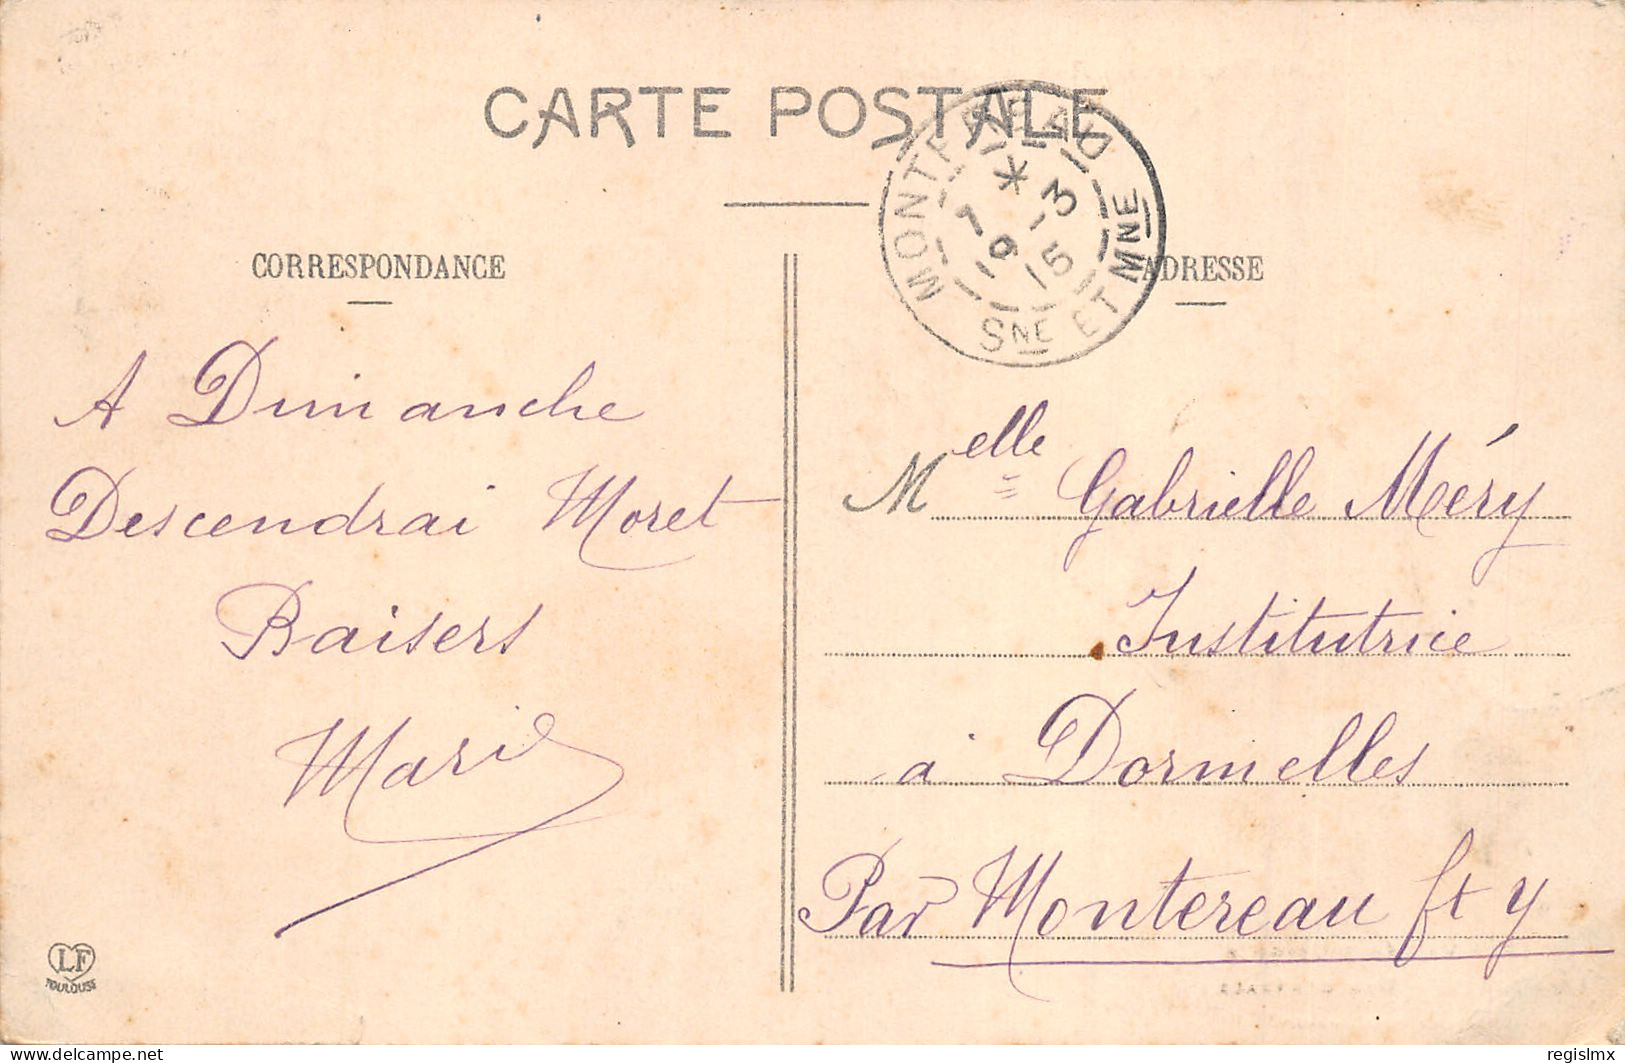 CARTE POSTALE
MONTEREAU
* 7 - 3
19 15
SNE ET MNE
CORRESPONDANCE
ADRESSE
A Dimanche
Descendrai Moret
Baisers
Marie
Melle Gabrielle Méry
Institutrice
à Dormelles
Par Montereau ft y
LF
TOULOUSE
delcampe.net
regislmx